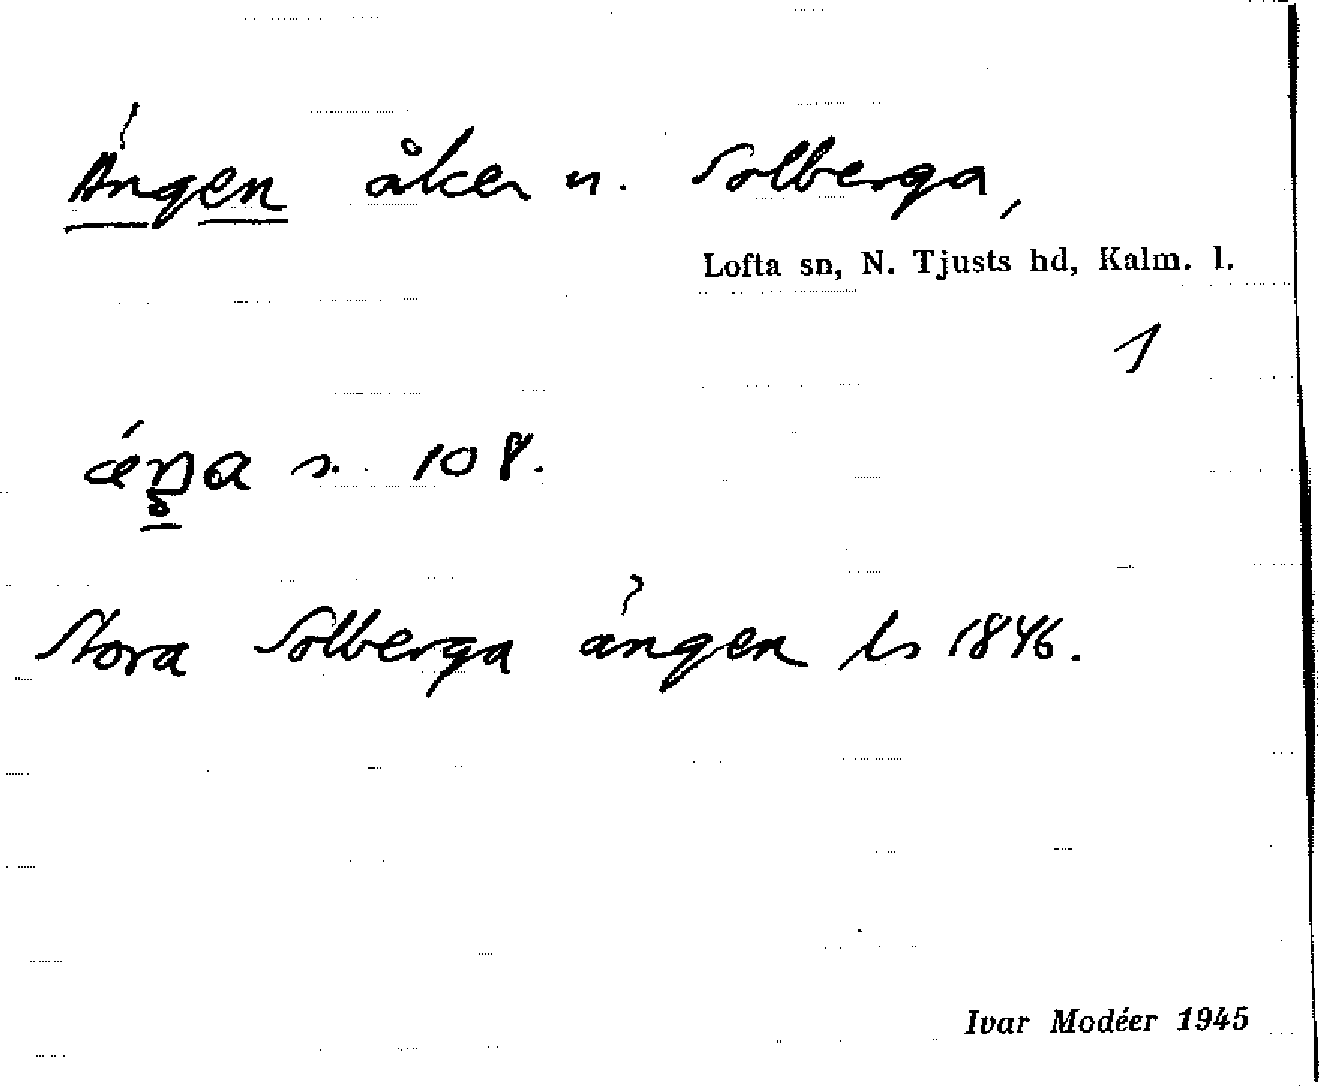 Ängen åker n. Solberga,
Lofta sn, N. Tjusts hd, Kalm. l.
1
s. 108.
Stora Solberga ängen ls 1846.
Ivar Modéer 1945